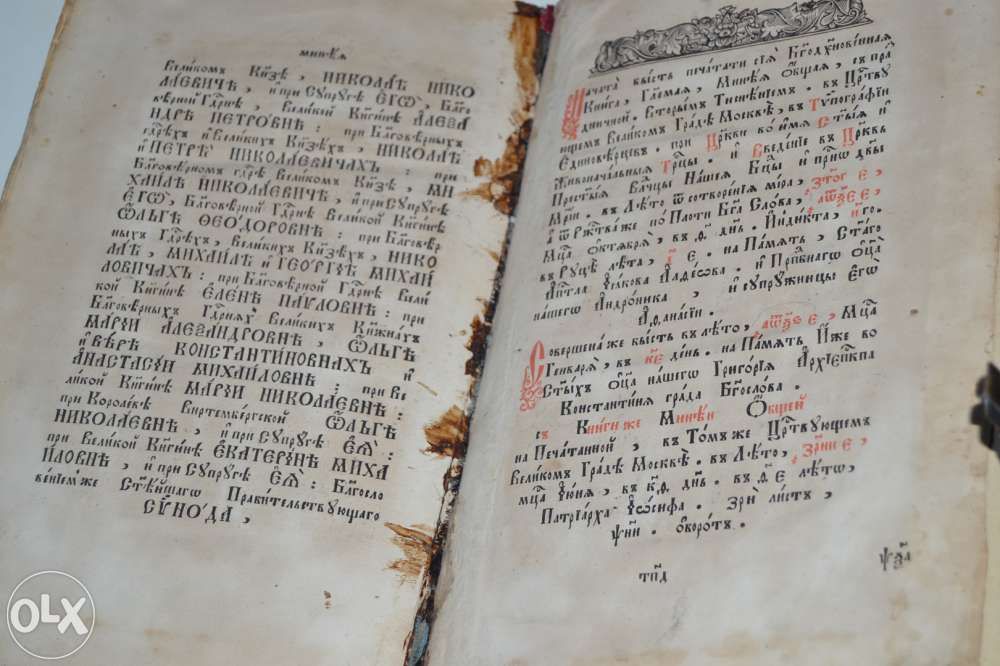 минеѧ
Великомъ Кн҃зѣ, НИКОЛАѢ НИКО
ЛАЕВИЧѢ, и҆ при Сꙋпрꙋгѣ ЕГѠ̀, Бл҃го
вѣрной Гдⷭ҇рнѣ, Великой Кнг҃инѣ АЛЕѮА
НДРѢ ПЕТРОВНѢ: при Благовѣрныхъ
гдⷭ҇рѣхъ и҆ Великихъ Кн҃зѣхъ, НИКОЛАѢ
и҆ ПЕТРѢ НИКОЛАЕВИЧАХЪ: при
Благовѣрномъ гдⷭ҇рѣ Великомъ Кн҃зѣ, МИ
ХАИЛѢ НИКОЛАЕВИЧѢ, и҆ при Сꙋпрꙋгѣ
ЕГѠ̀, Благовѣрной Гдⷭ҇рнѣ Великой Кнг҃инѣ
Ѻ҆ЛЬГѢ ѲЕОДОРОВНѢ: при Благовѣр
ныхъ Гдⷭ҇рѣхъ, Великихъ Кн҃зѣхъ, НИКО
ЛАѢ, МИХАИЛѢ и҆ ГЕОРГІѢ МИХАИ
ЛОВИЧАХЪ: при Благовѣрной Гдⷭ҇рнѣ Вели
кой Кнг҃инѣ ЕЛЕНѢ ПАѴЛОВНѢ: при
Благовѣрныхъ Гдⷭ҇рняхъ Великихъ Кн҃жнахъ
МАРІИ АЛЕѮАНДРОВНѢ, Ѻ҆ЛЬГѢ
и҆ ВѢРѢ КОНСТАНТИНОВНАХЪ и҆
АНАСТАСІИ МИХАИЛОВНѢ: при Ве
ликой Кнг҃инѣ МАРІИ НИКОЛАЕВНѢ:
при Королевѣ Виртембергской Ѻ҆ЛЬГѢ
НИКОЛАЕВНѢ, и҆ при Сꙋпрꙋгѣ ЕѦ̀:
при Великой Кнг҃инѣ ЕКАТЕРИНѢ МИХА
ИЛОВНѢ, и҆ при Сꙋпрꙋгѣ ЕѦ̀: Благосло
веніемже Ст҃ѣйшагѡ Правительствꙋющагѡ
СѴНОДА,
Начата бысть печатати сїѧ Бг҃одꙋхновеннаѧ
Книга, Гл҃емаѧ, Минеѧ Ѻбщаѧ, съ пра
здничной. Вторымъ Тисненїемъ. въ Црⷭ҇твꙋ
ющемъ Великомъ Градѣ Москвѣ, въ Тѵпографїи
Единовѣрцевъ. при Цр҃кви во и҆мѧ Ст҃ыѧ и҆
Живоначальныѧ Трⷪ҇цы. и҆ Введенїе въ Цр҃ковь
Прест҃ыѧ Влⷣчцы Нашеѧ Бц҃ы и҆ прⷭ҇нѡ дв҃ы
Мр҃їи. въ Лѣто ѿ сотворенїѧ мїра,
а ѿ Ржⷭ҇тваже по Плоти Бг҃а Слова,
Мц҃а Октѧбрѧ, въ д҃ дн҃ь. Индикта, го.
въ Рꙋцѣ лѣта, Е. на Память, Ст҃аго
Апⷭ҇тла Іакова Алфеова. и҆ Прпⷣбнагѡ ѻц҃а
нашегѡ Андроника, и҆ сꙋпрꙋжницы Егѡ̀
Аѳанасїи.
Совершенаже бысть въ лѣто, Мц҃а
Генварѧ, въ к҃е день. на Память Иже во
Ст҃ыхъ ѻц҃а нашегѡ Григорїѧ Архїепⷭ҇кпа
Константинѧ града Бг҃ослова.
съ Книги же Минеи Ѻбщей
на Печатанной, въ Томъ же Црⷭ҇твꙋющемъ
Великомъ Градѣ Москвѣ. въ Лѣто,
мц҃а Їюнѧ, въ к҃д дн҃ь. въ Е лѣто,
Патрїарха Їѡсифа. Зри листъ,
ѱн҃и. ѻборотъ.
тп҃д
OLX